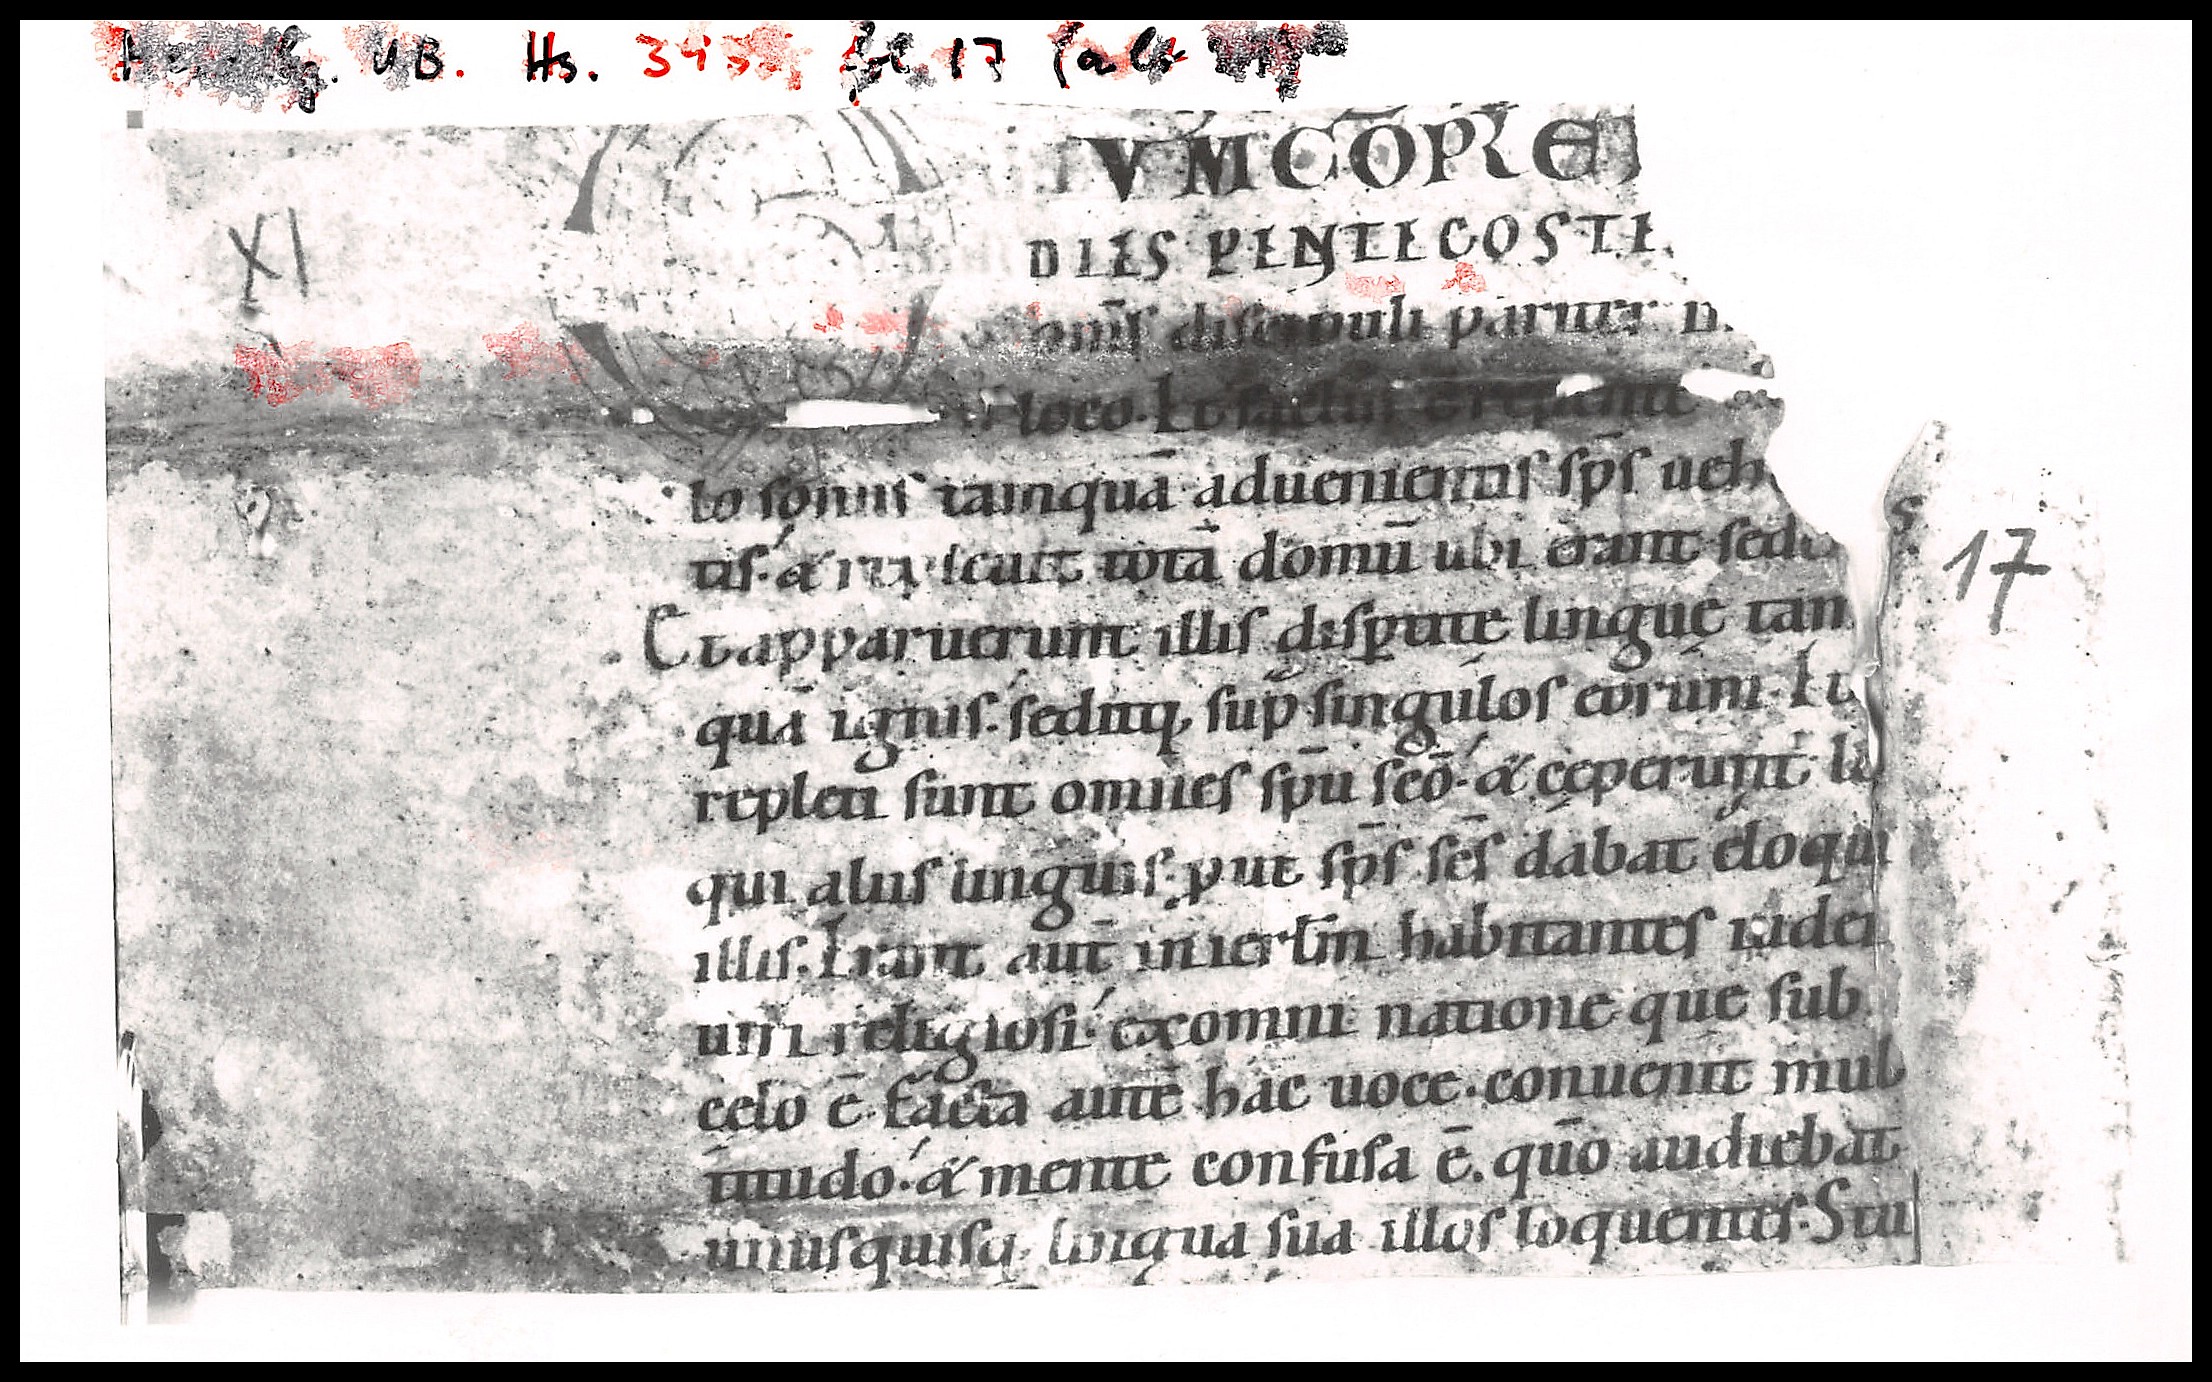 UB. Hs. 17
VM CŌPLE
XI
DIES PENTECOSTE.
om̄s discipuli pariter
loco. Et factus
lo sonus tamquā aduenientis sp̄s ueh
tis. & totā domū ubi erant sede
17
Et apparuerunt illis disp̱tite linguę tam
quā ignis. seditq; sup̄ singulos eorum. Et
repleti sunt omnes sp̄u sc̄ō. & cęperunt lo
qui aliis linguis. ꝓut sp̄s sc̄s dabat eloqui
illis. Erant aut̄ in ierl̄m habitantes iudei
uiri religiosi. ex omni natione que sub
celo ē. Facta autē hac uoce. conuenit mul
titudo. & mente confusa ē. quō audiebat
unusquisq; lingua sua illos loquentes. Stu